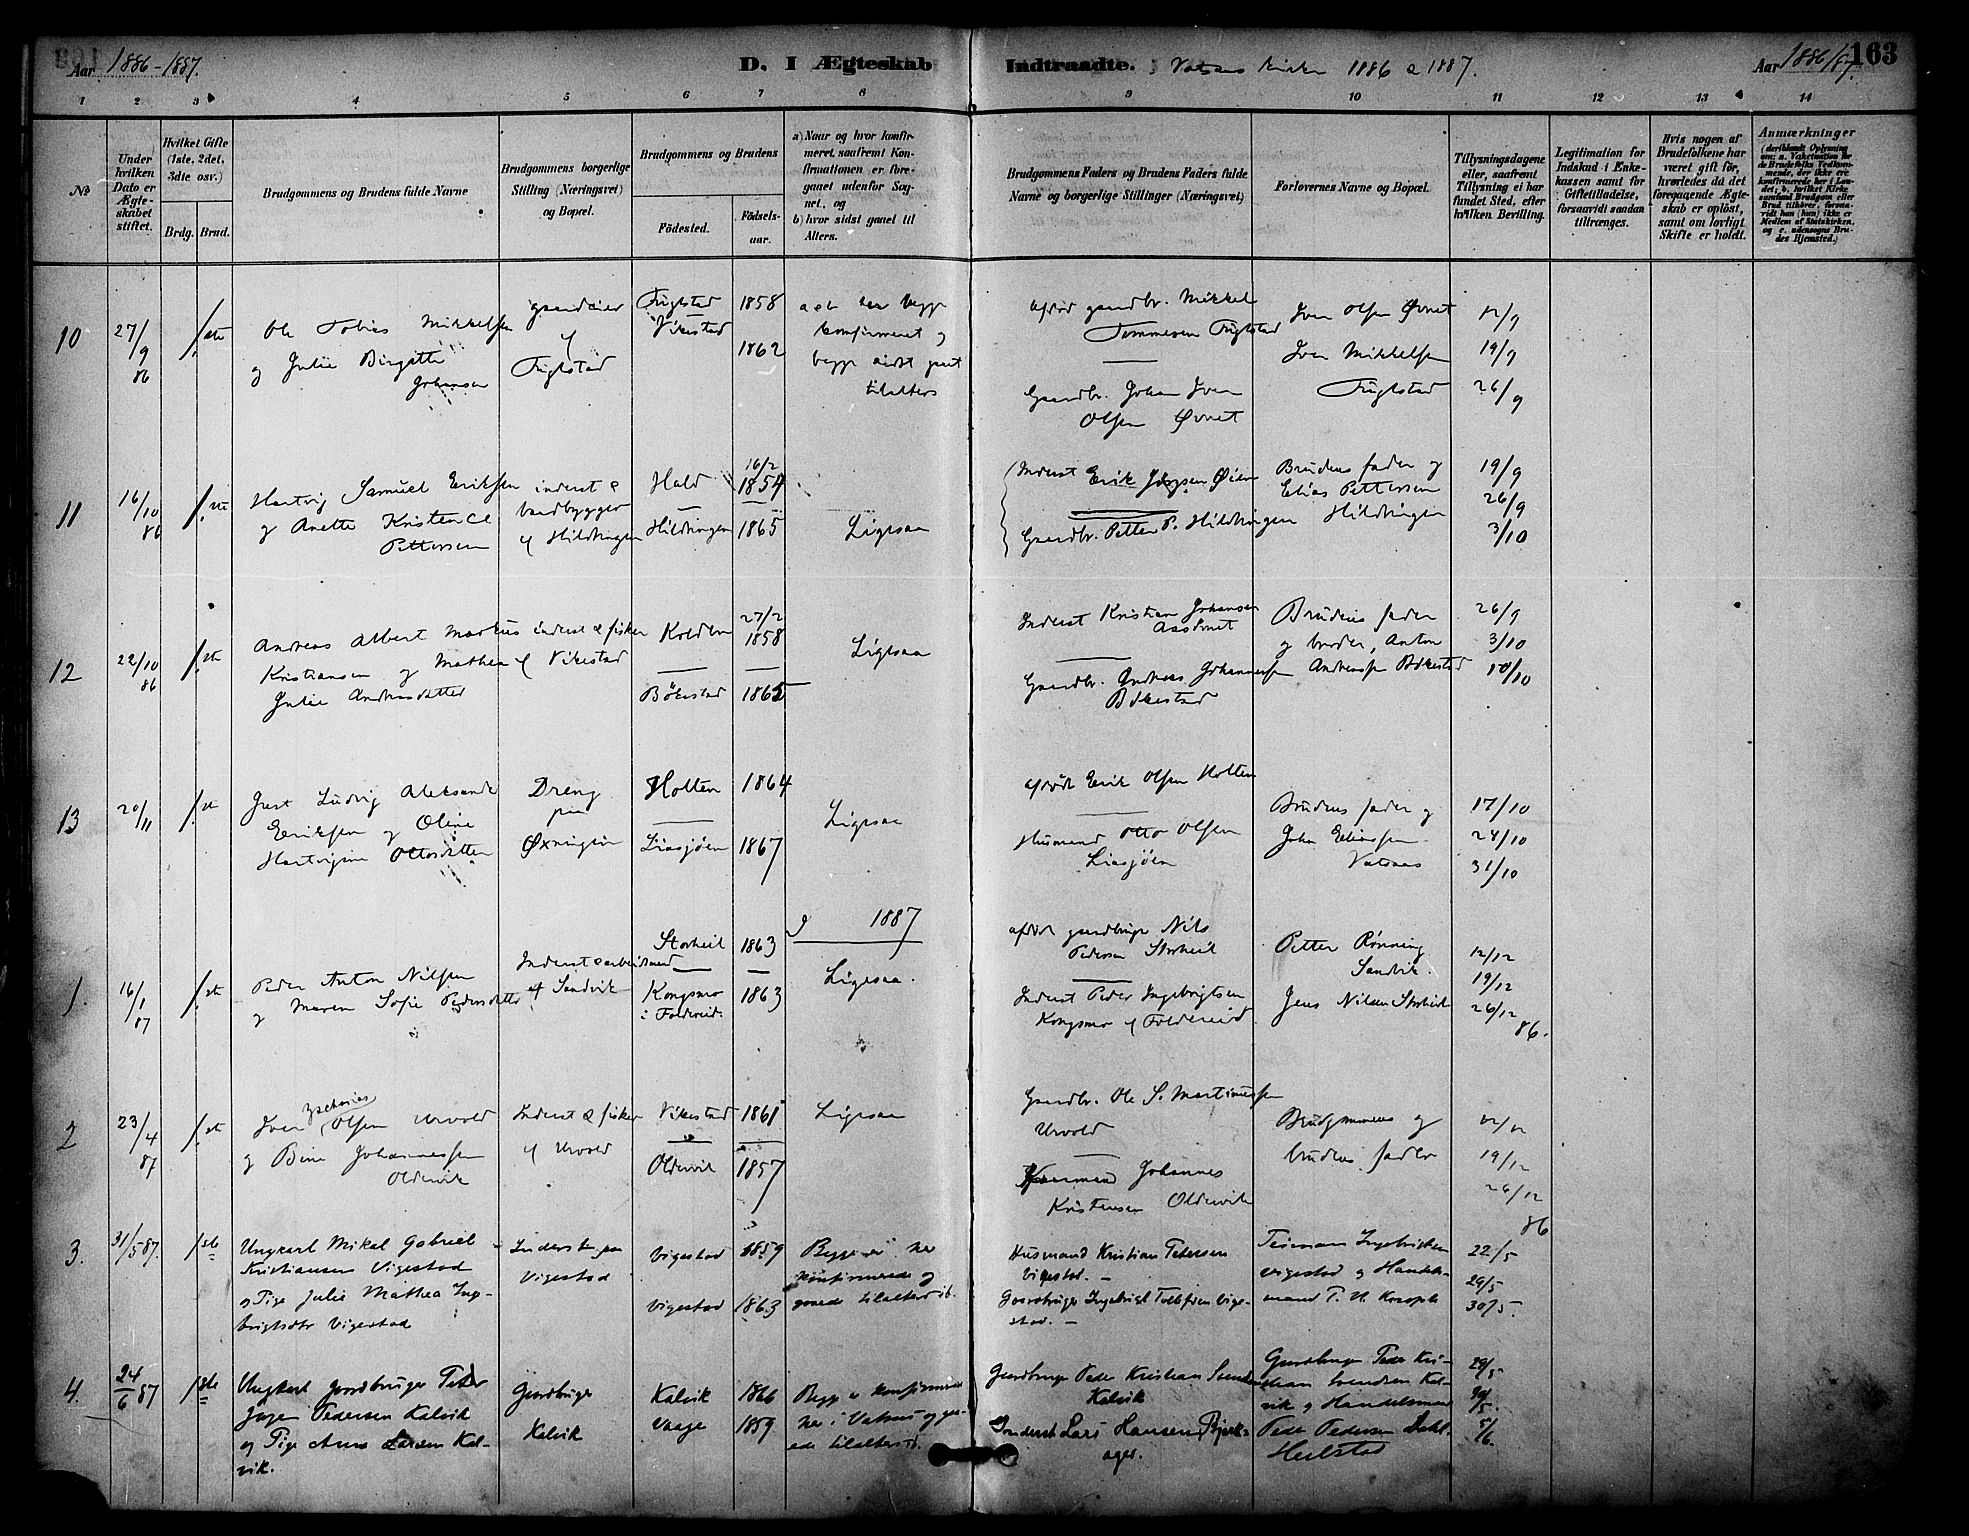 Aar 1886-1887.
D. I Ægteskab Indtraadte. i Vatsaas Kirke 1886 & 1887.
Aar 1886/87.
163
1 2 3 4 5 6 7 8 9 10 11 12 13 14
No
Under hvilken Dato er Ægteskabet stiftet.
Hvilket Gifte (1ste, 2det, 3dte osv.)
Brdg. Brud.
Brudgommens og Brudens fulde Navne
Brudgommens borgerlige Stilling (Næringsvei) og Bopæl.
Brudgommens og Brudens
Födested.
Födselsaar.
a) Naar og hvor konfirmeret, saafremt Konfirmationen er foregaaet udenfor Sognet, og
b) hvor sidst gaaet til Alters.
Brudgommens Faders og Brudens Faders fulde Navne og borgerlige Stillinger (Næringsvei)
Forlovernes Navne og Bopæl.
Tillysningsdagene eller, saafremt Tillysning ei har fundet Sted, efter hvilken Bevilling.
Legitimation for Indskud i Enkekassen samt for Giftetilladelse, forsaavidt saadan tiltrænges.
Hvis nogen af Brudefolkene har været gift för, hvorledes da det foregaaende Ægteskab er oplöst, samt om lovligt Skifte er holdt.
Anmærkninger
10
27/9 86
1ste
Ole Tobias Mikkelsen
og Julie Birgitte
Johansen
gaardeier
af
Fuglstad
Fuglstad
Vikestad
1858
1862
a & b her begge
konfirmeret og
begge sidst gaaet
tilalters
afdöd gaardbr. Mikkel
Tommesen Fuglstad
Gaardbr. Johan Iver
Olsen Øvnet
Iver Olsen Øvnet
Iver Mikkelsen
Fuglstad
12/9
19/9
26/9
11
16/10 86
1ste
Hartvig Samuel Eriksen
og Anette Kristence
Pettersen
inderst &
baadbygger
af Hildringen
Hald
Hildringen
16/2
1854
1865
Ligesaa
Inderst Erik Øien
Gaardbr. Petter P. Hildringen
Brudens fader og
Elias Pettersen
Hildringen
19/9
26/9
3/10
12
22/10 86
1ste
Andreas Albert Markus
Kristiansen og Mathea
Julie Andreasdatter
inderst & fisker
af Vikestad
Bökestad
27/2
1858
1865
Ligesaa
Inderst Kristian Johansen
Gaardbr. Andreas Johannessen
Bökestad
Brudens fader
og broder, Anton
Andreassen Bökestad
26/9
3/10
10/10
13
20/11
1ste
Just Ludvig Aleksander
Eriksen og Oline
Hartvigine Ottosdatter
Dreng
paa
Øxningöen
Holten
Liasjöen
1864
1867
Ligesaa
afdöd Erik Olsen Holten
Husmand Otto Olsen
Liasjöen
Brudens fader og
John Eliassen
Vatsaas
17/10
24/10
31/10
1887
1
16/1 87
1ste
Peder Anton Nilsen
og Maren Sofie Pedersdatter
Inderst & arbeidsmand
af Sandvik
Storheil
Kongsmo
i Foldereid.
1863
1863
Ligesaa.
afdöd gaardbruger Nils
Pedersen Storheil
Inderst Peder Ingebrigtsen
Kongsmo af Foldereid
Petter Rönning
Sandvik.
Jens Nilsen Storheil
12/12
19/12
26/12
86.
2
23/4 87
1ste
Iver Zacharias Olsen Urvold
og Bine Johannessen
Oldervik
Inderst & fisker
af Urvold
Vikestad
Oldervik
1861
1857
Ligesaa
Gaardbr. Ole S. Martinussen
Urvold
Husmand Johannes
Kristensen Oldervik
Brudgommens og
brudens fader
12/12
19/12
26/12
86
3.
31/5 87.
1ste
Ungkarl Mikal Gabriel
Kristiansen Vigestad
og Pige Julie Mathea Ing-
brigtsdtr Vigestad
Inderst paa
Vigestad
Vigestad
Vigestad
1859
1863
Begge er her
konfirmerede og
gaaede tilalters ib.
Husmand Kristian Petersen
Vigestad. -
Gaardbruger Ingebrigt Tollefsen Vige-
stad. -
Ingebrigtsen
Vigestad og Handels-
mand
22/5
29/5
30/5.
4.
24/6 87
1ste
Ungkarl Gaardbruger Peter
Jörgen Pedersen Kalvik
og Pige Anna Larsen Kal-
vik.
Gaardbruger
Kalvik
Kalvik
Vaage
1866
1859
Begge er konfirmerede
her i Vatsaas og gaa-
ede tilalters ib.
Gaardbruger Peder Kristian Svendsen
Kalvik
Inderst Lars Hansen Bjerk-
ager.
Gaardbruger Peder Kri-
stian Svendsen Kal-
vik og Handelsmand
Peder Pedersen Dahl.
Heilstad
29/5
30/5.
5/6.